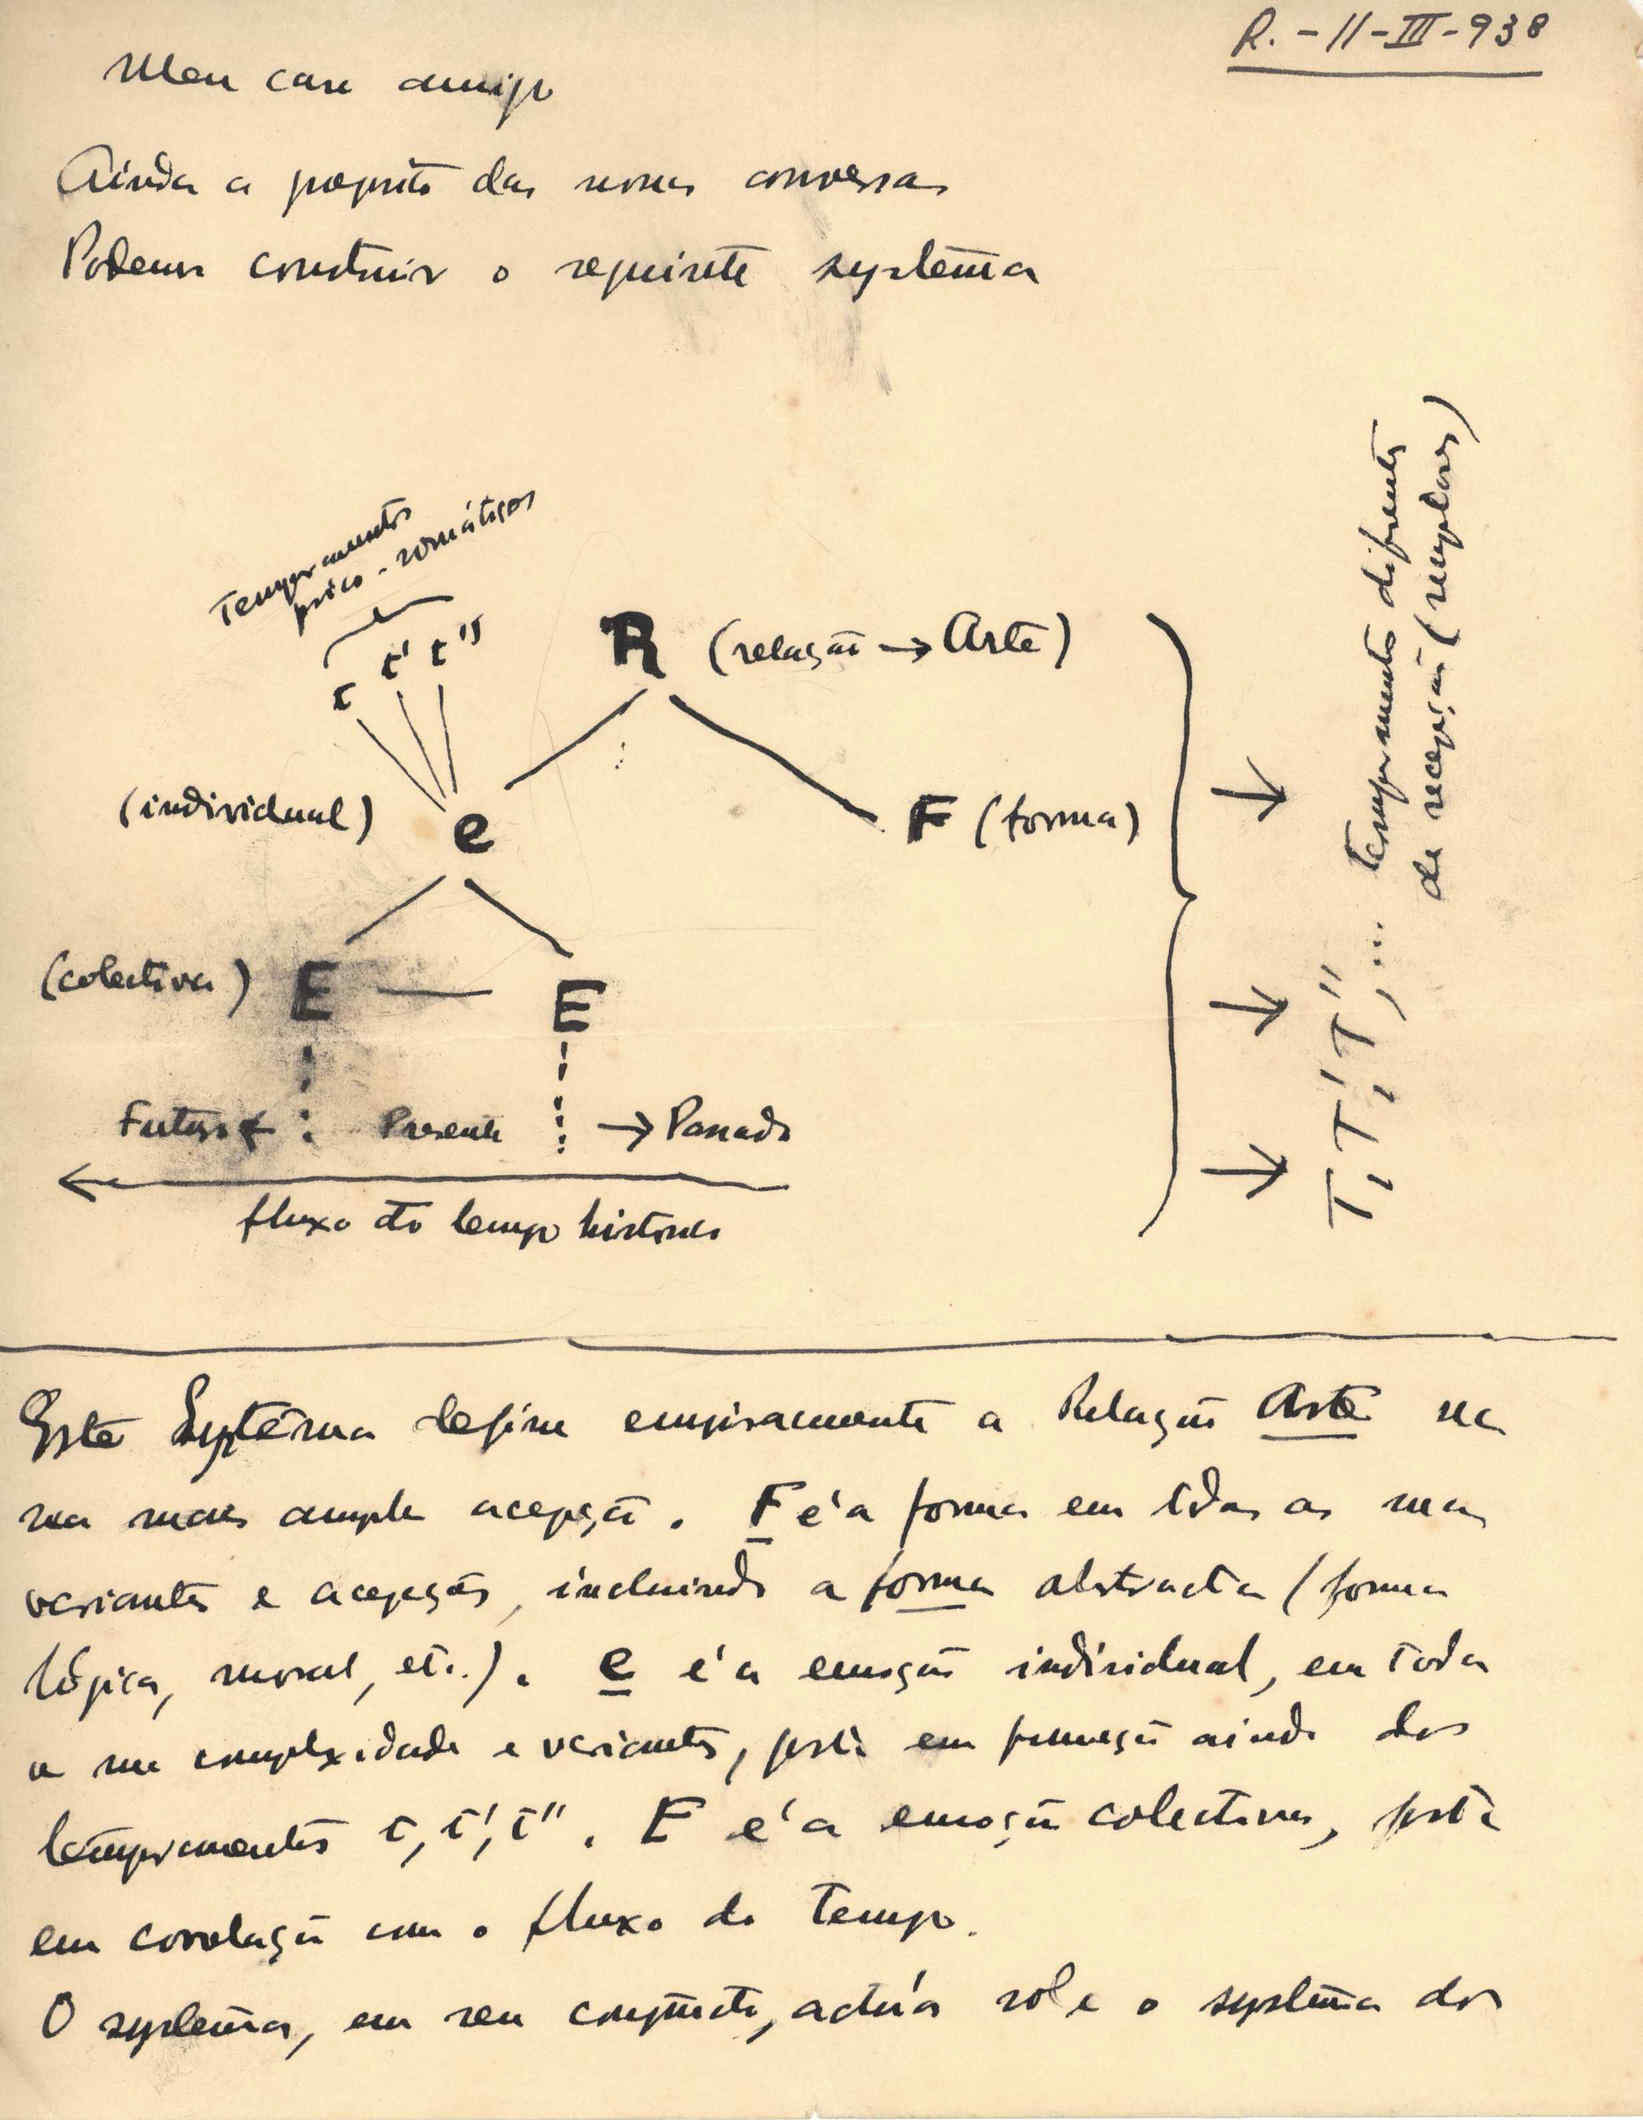 R. - 11 - III - 938
Meu caro amigo
Ainda a proposito das nossas conversas
Podemos construir o seguinte systema
Temperamentos
psico-somáticos
t t' t''
R (relação → Arte)
(individual) e F (forma)
(colectiva) E — E
Futuro ← Presente → Passado
fluxo do tempo histórico
T, T', T'', ... temperamentos diferentes
de recepção (receptores)
Este Systema define empiricamente a Relação Arte na
sua mais ampla acepção. F é a forma em todas as suas
variantes e acepções, incluindo a forma abstracta (forma
lógica, moral, etc.). e é a emoção individual, em toda
a sua complexidade e variantes, posta em funcção ainda dos
temperamentos t, t', t''. E é a emoção colectiva, posta
em correlação com o fluxo do Tempo.
O systema, em seu conjuncto, actúa sobre o systema dos